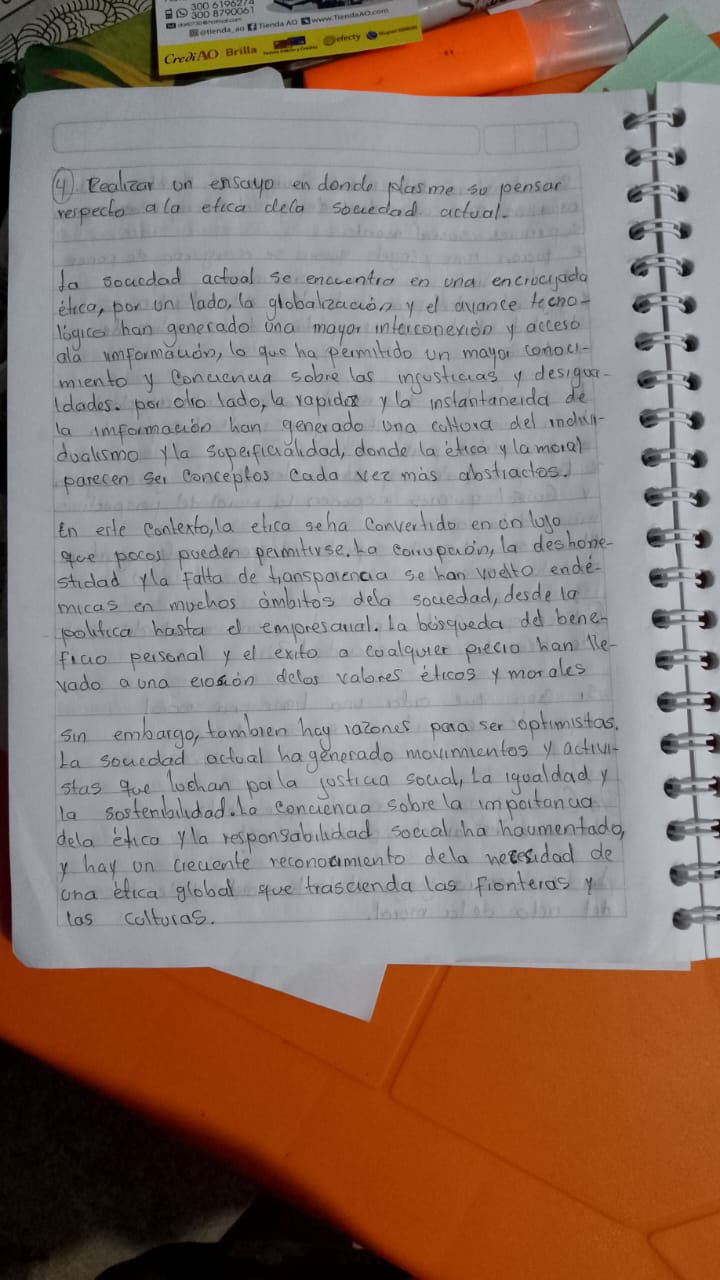 300 6196274
300 8790061
@tienda_ao Tienda AO www.TiendaAO.com
CrediAO Brilla efecty
4) Realizar un ensayo en donde plasme su pensar
respecto a la etica dela sociedad actual.
La sociedad actual se encuentra en una encrucijada
ética, por un lado, la globalización y el avance tecno-
lógico han generado una mayor interconexión y acceso
ala imformación, lo que ha permitido un mayor conoci-
miento y conciencia sobre las injusticias y desigua-
ldades. por otro lado, la rapidez y la instantaneida de
la imformación han generado una cultura del indivi-
dualismo y la superficialidad, donde la ética y la moral
parecen ser conceptos cada vez más abstractos.
En este contexto, la etica seha convertido en un lujo
que pocos pueden permitirse. La corrupción, la deshone-
stidad y la falta de transparencia se han vuelto endé-
micas en muchos ámbitos dela sociedad, desde la
política hasta el empresarial. La búsqueda del bene-
ficio personal y el exito a cualquier precio han lle-
vado a una erosión delos valores éticos y morales
Sin embargo, tambien hay razones para ser optimistas.
La sociedad actual ha generado movimientos y activi-
stas que luchan por la justicia social, La igualdad y
la sostenbilidad. La conciencia sobre la importancia
dela ética y la responsabilidad social ha haumentado,
y hay un creciente reconocimiento dela necesidad de
una ética global que trascienda las fronteras y
las culturas.